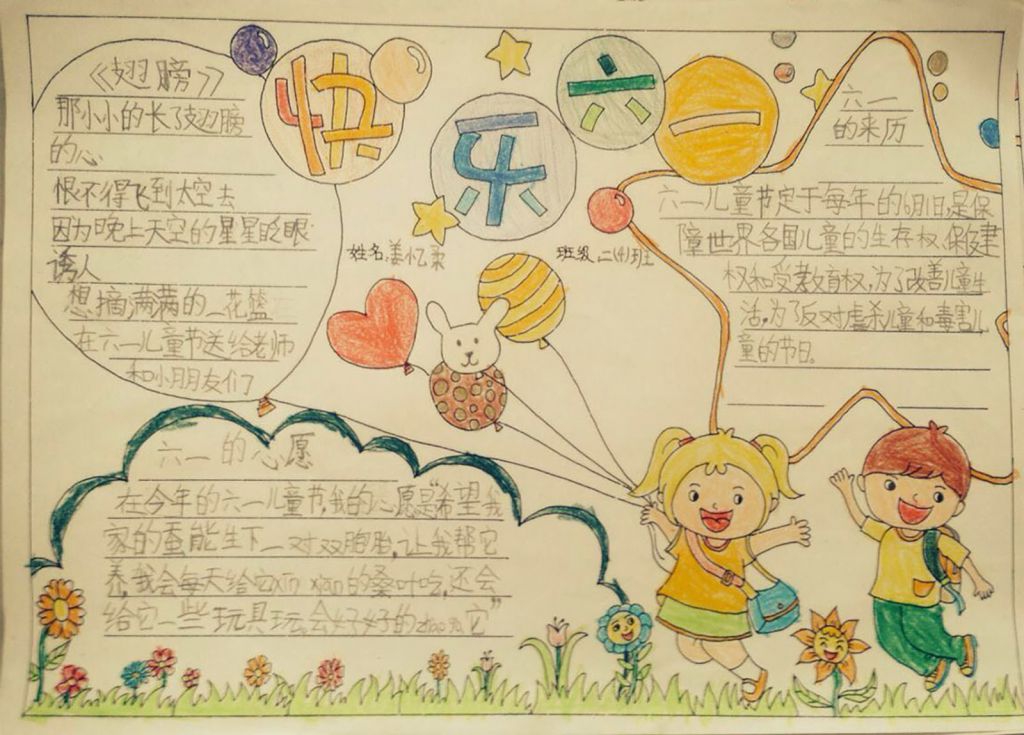 快乐六一
《翅膀》
那小小的长了翅膀
的心
恨不得飞到太空去
因为晚上天空的星星眨眼
诱人
想摘满满的一花篮
在六一儿童节送给老师
和小朋友们
姓名:姜忆柔
班级:二(4)班
六一
的来历
六一儿童节定于每年的6月1日,是保
障世界各国儿童的生存权、保健
权和受教育权,为了改善儿童生
活,为了反对虐杀儿童和毒害儿
童的节日。
六一的心愿
在今年的六一儿童节,我的心愿是“希望我
家的蚕能生下一对双胞胎,让我帮它
养,我会每天给它xīn xiān的桑叶吃,还会
给它一些玩具玩,会好好的zhào gù它”